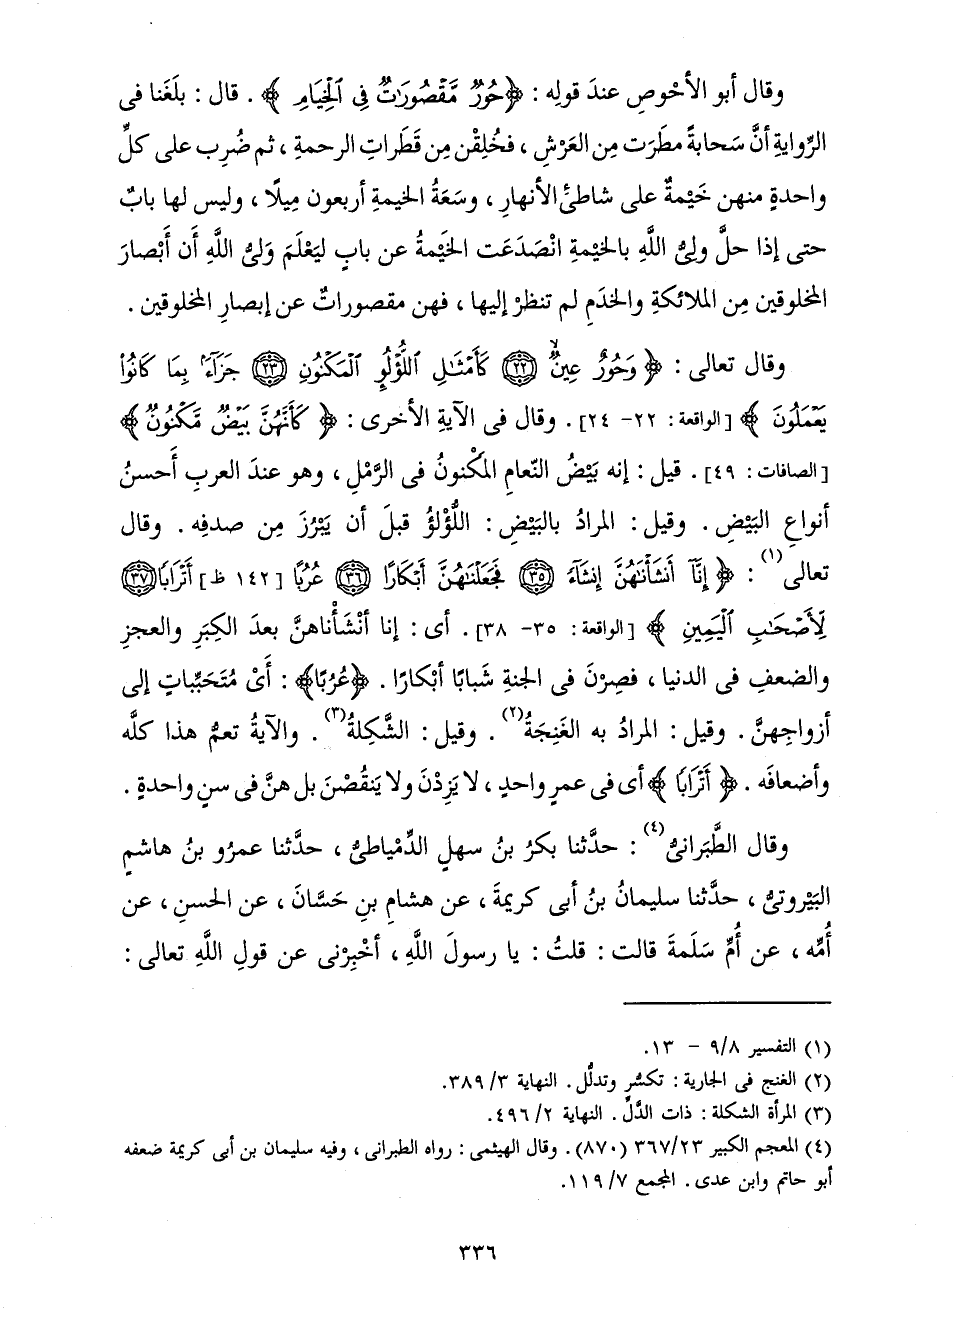 وقال أبو الأحْوصِ عندَ قولِه : ﴿حُورٌ مَّقْصُورَٰتٌ فِى ٱلْخِيَامِ﴾ . قال : بلَغَنا فى
الرِّوايةِ أنَّ سَحابةً مطَرَت مِن العَرْشِ ، فخُلِقْن مِن قَطَراتِ الرحمةِ ، ثم ضُرِب على كلِّ
واحدةٍ منهن خَيْمةٌ على شاطئِ الأنهارِ ، وسَعَةُ الخيمةِ أربعون مِيلًا ، وليس لها بابٌ
حتى إذا حلَّ ولىُّ اللَّهِ بالخَيْمةِ انْصَدَعَت الخَيْمةُ عن بابٍ ليَعْلَمَ وَلىُّ اللَّهِ أن أَبْصارَ
المخلوقين مِن الملائكةِ والخدَمِ لم تنظرْ إليها ، فهن مقصوراتٌ عن إبصارِ المخلوقين .
وقال تعالى : ﴿وَحُورٌ عِينٌ ۝٢٢ كَأَمْثَـٰلِ ٱللُّؤْلُوِٕ ٱلْمَكْنُونِ ۝٢٣ جَزَآءًۢ بِمَا كَانُوا۟
يَعْمَلُونَ﴾ [الواقعة : ٢٢- ٢٤] . وقال فى الآيةِ الأخرى : ﴿كَأَنَّهُنَّ بَيْضٌ مَّكْنُونٌ﴾
[الصافات : ٤٩] . قيل : إنه بَيْضُ النّعامِ المَكْنونُ فى الرَّمْلِ ، وهو عندَ العربِ أَحسنُ
أنواعِ البَيْضِ . وقيل : المرادُ بالبَيْضِ : اللُّؤْلؤُ قبلَ أن يَبْرُزَ مِن صدفِه . وقال
تعالى(١) : ﴿إِنَّآ أَنشَأْنَـٰهُنَّ إِنشَآءً ۝٣٥ فَجَعَلْنَـٰهُنَّ أَبْكَارًا ۝٣٦ عُرُبًا [١٤٢ ظ] أَتْرَابًا ۝٣٧
لِّأَصْحَـٰبِ ٱلْيَمِينِ﴾ [الواقعة : ٣٥- ٣٨] . أى : إنا أنْشَأْناهنَّ بعدَ الكِبَرِ والعجزِ
والضعفِ فى الدنيا ، فصِرْنَ فى الجنةِ شَبابًا أبْكارًا . ﴿عُرُبًا﴾ : أىْ مُتَحَبِّباتٍ إلى
أزواجِهنَّ . وقيل : المرادُ به الغَنِجَةُ(٢) . وقيل : الشَّكِلةُ(٣) . والآيةُ تعمُّ هذا كلَّه
وأضعافَه . ﴿أَتْرَابًا﴾ أى فى عمرٍ واحدٍ ، لا يَزِدْنَ ولا يَنقُصْنَ بل هنَّ فى سنٍ واحدةٍ .
وقال الطَّبَرانىُّ(٤) : حدَّثنا بكرُ بنُ سهلٍ الدِّمْياطىُّ ، حدَّثنا عمرُو بنُ هاشمٍ
البَيْروتىُّ ، حدَّثنا سليمانُ بنُ أبى كريمةَ ، عن هشامِ بنِ حَسَّانَ ، عن الحسنِ ، عن
أُمِّه ، عن أُمِّ سَلَمةَ قالت : قلتُ : يا رسولَ اللَّهِ ، أخْبِرْنى عن قولِ اللَّهِ تعالى :
(١) التفسير ٨/ ٩ - ١٣.
(٢) الغنج فى الجارية : تكسُّر وتدلُّل . النهاية ٣/ ٣٨٩.
(٣) المرأة الشكلة : ذات الدَّلِّ . النهاية ٢/ ٤٩٦.
(٤) المعجم الكبير ٢٣/ ٣٦٧ (٨٧٠) . وقال الهيثمى : رواه الطبرانى ، وفيه سليمان بن أبى كريمة ضعفه
أبو حاتم وابن عدى . المجمع ٧/ ١١٩.
٣٣٦